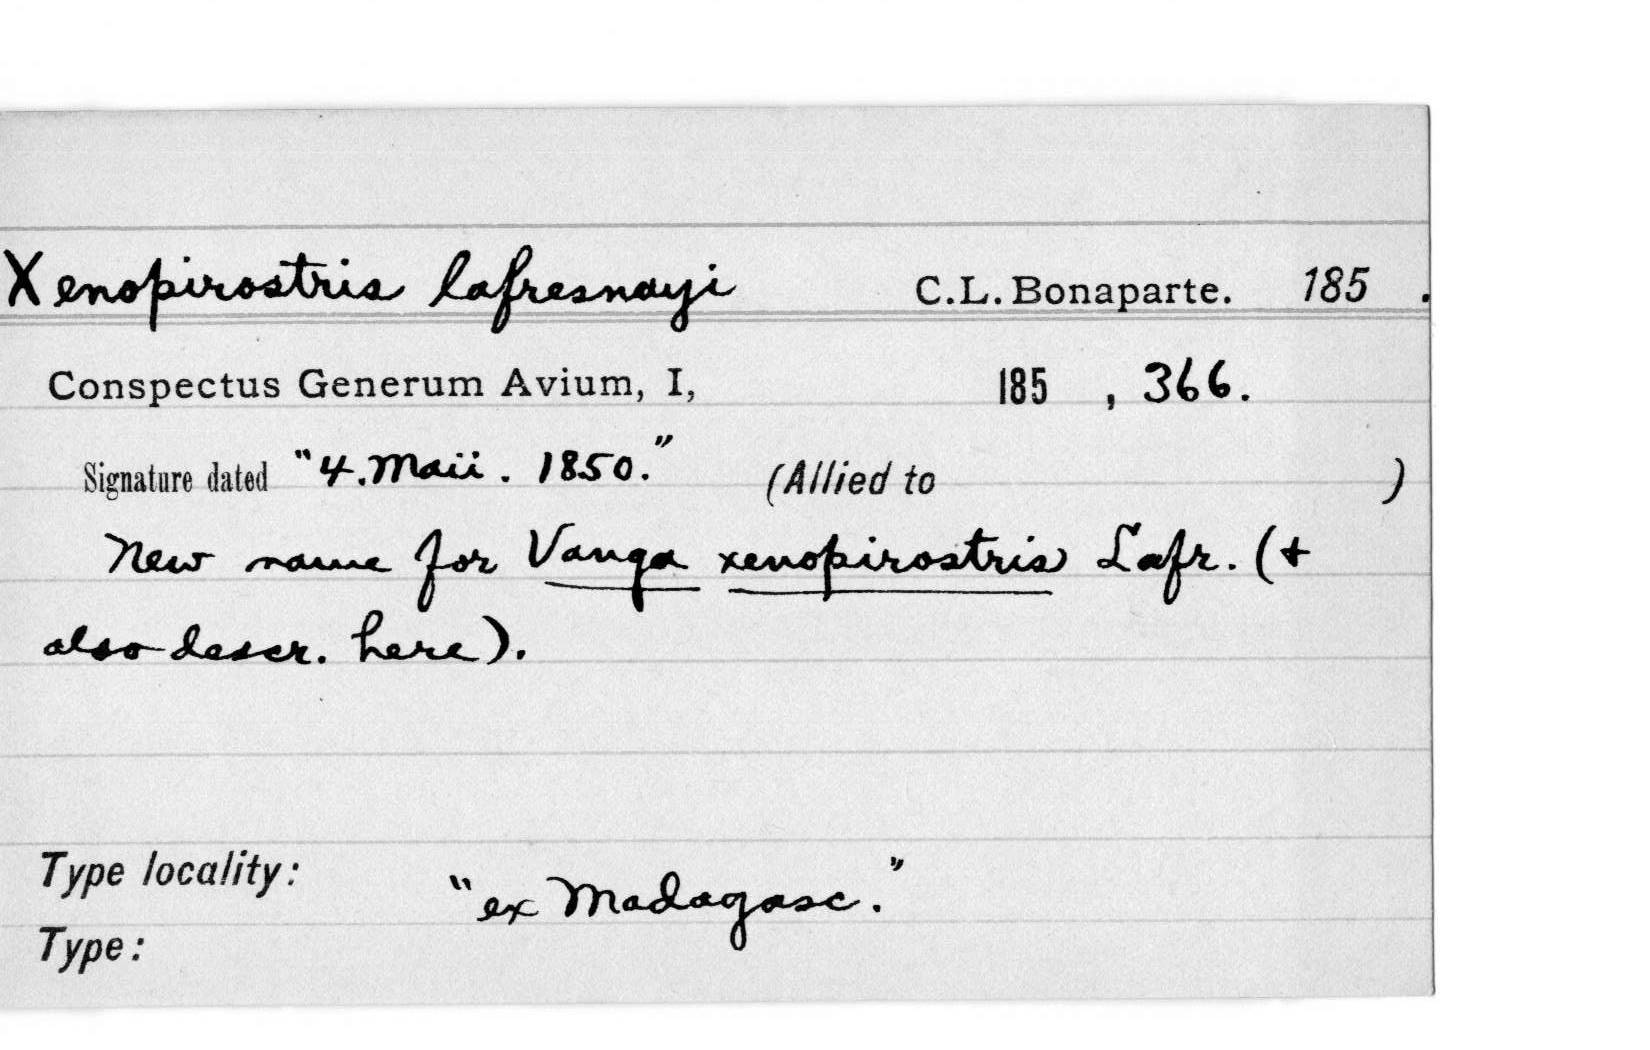 Xenopirostris lafresnayi C.L. Bonaparte. 185 .
Conspectus Generum Avium, I, 185 , 366.
Signature dated "4. Maii. 1850." (Allied to )
New name for Vanga xenopirostris Lafr. (+
also descr. here).
Type locality: "ex Madagasc."
Type: